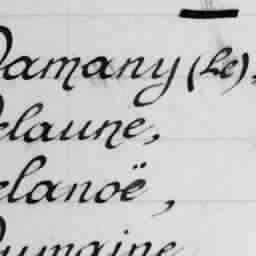 Damany (Le),
Delaune,
Delanoë,
Dumaine